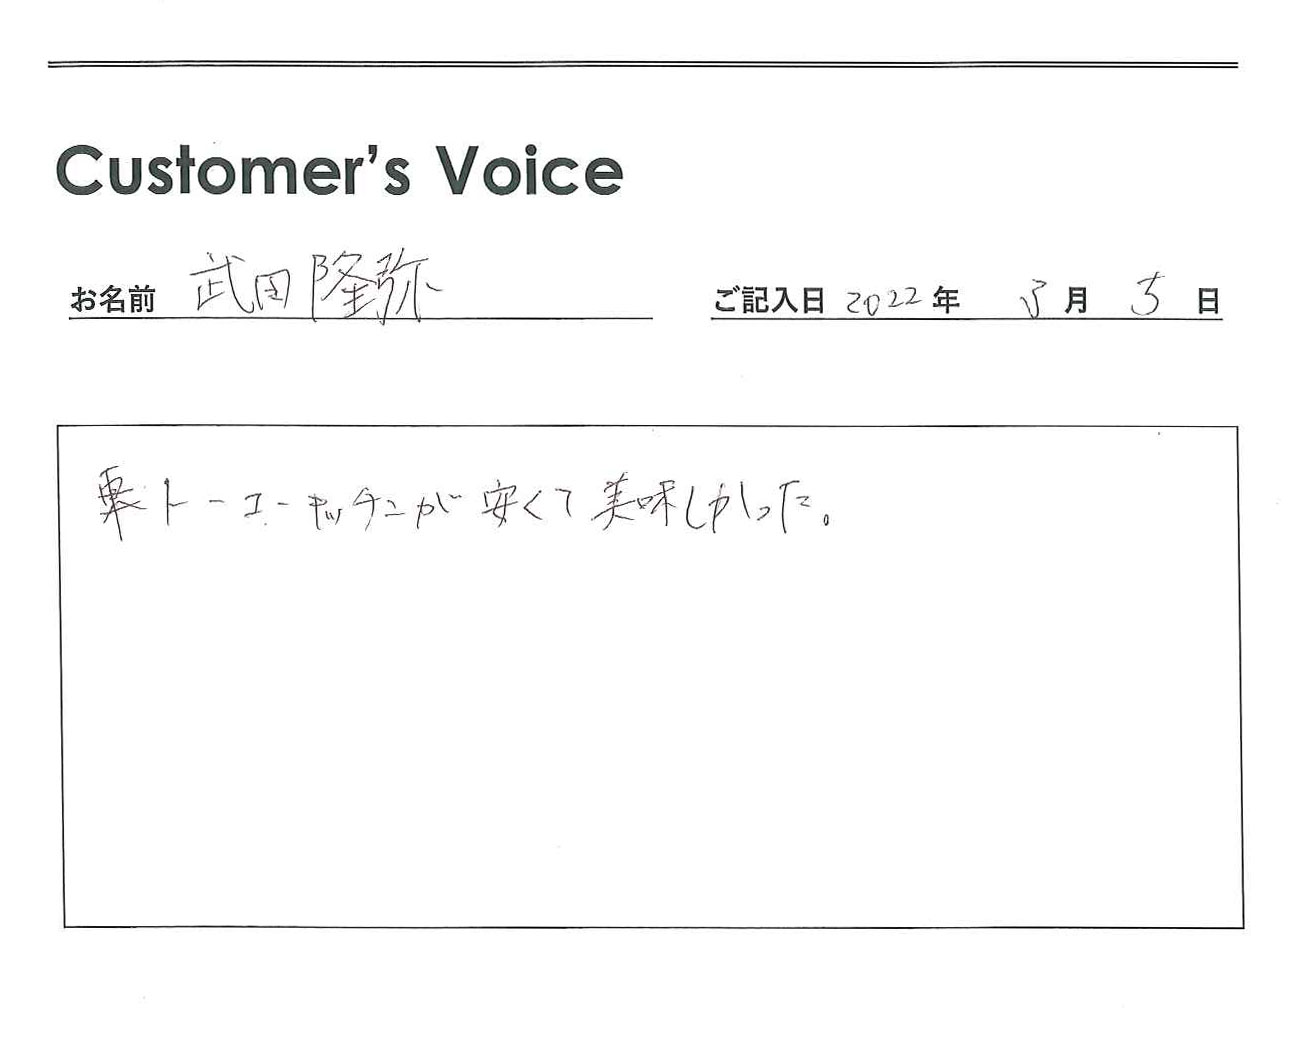 Customer's Voice
お名前 武田隆弥
ご記入日 2022年 3月 5日
トーコーキッチンが安くて美味しかった。